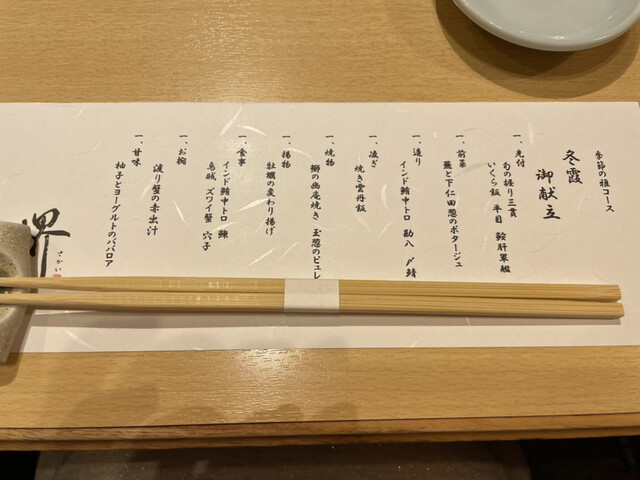 季節の雅コース
冬霞
御献立
一、先付
旬の握り三貫
いくら飯 平目 鮟肝軍艦
一、前菜
蕪と下仁田葱のポタージュ
一、造り
インド鮪中トロ 勘八 〆鯖
一、凌ぎ
焼き雲丹飯
一、焼物
鰤の幽庵焼き 玉葱のピュレ
一、揚物
牡蠣の変わり揚げ
一、食事
インド鮪中トロ 鰊
烏賊 ズワイ蟹 穴子
一、お椀
渡り蟹の赤出汁
一、甘味
柚子とヨーグルトのババロア
堺
さかい